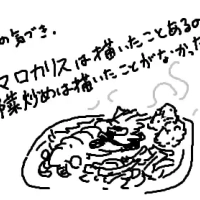 の気づき.
マロカリスは描いたことあるの
野菜炒めは描いたことがなかった